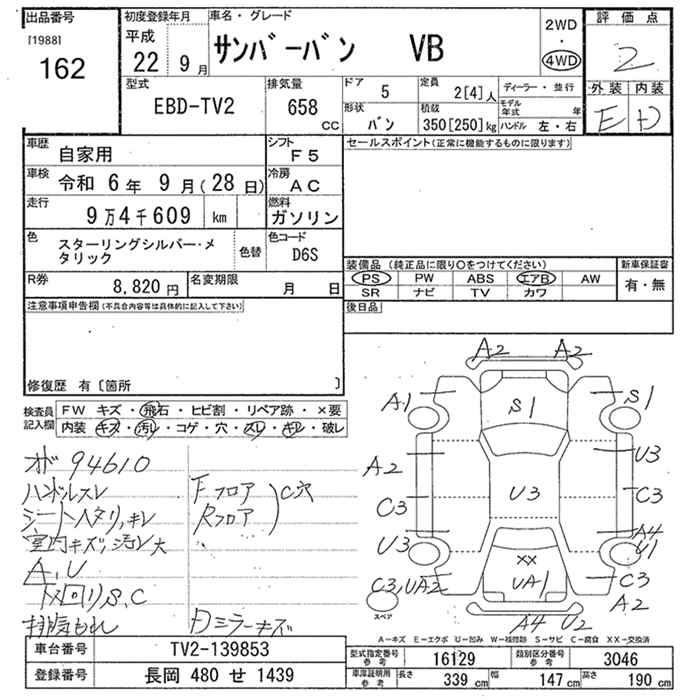 出品番号
[1988]
162
初度登録年月
平成
22 9月
車名・グレード
サンバーバン VB
2WD
・
4WD
評価点
2
外装 内装
E D
型式
EBD-TV2
排気量
658
CC
ドア
5
定員
2[4]人
形状
バン
積載
350[250]kg
ディーラー・並行
モデル年式 年
ハンドル 左・右
車歴
自家用
シフト
F5
車検
令和 6年 9月(28日)
冷房
AC
走行
9万4千609 km
燃料
ガソリン
色
スターリングシルバー・メタリック
色替
色コード
D6S
R券
8,820円
名変期限
月 日
セールスポイント(正常に機能するものに限ります)
装備品(純正品に限り○をつけてください)
PS PW ABS エアB AW
SR ナビ TV カワ
新車保証書
有・無
後日品
注意事項申告欄(不具合内容等は具体的に記入して下さい)
修復歴 有〔箇所 〕
検査員記入欄
FW キズ・飛石・ヒビ割・リペア跡・×要
内装 キズ・汚れ・コゲ・穴・スレ・キレ・破レ
94610
ハンドルスレ
シートヘタリ、キレ
室内キズ、汚レ大
A、U
下回りS、C
排気もれ
Fフロア
Rフロア
C穴
Dミラーキズ
A2 A2
A1 S1 S1
A2 U3
C3 U3 C3
U3 A4 U1
XX
C3,UA2 UA1 C3
A2
A4 U2
スペア
A-キズ E-エクボ U-凹み W-補修跡 S-サビ C-腐食 XX-交換済
車台番号
TV2-139853
登録番号
長岡 480 せ 1439
型式指定番号
参考
16129
類別区分番号
参考
3046
車庫証明用
参考
長さ 339 cm 幅 147 cm 高さ 190 cm